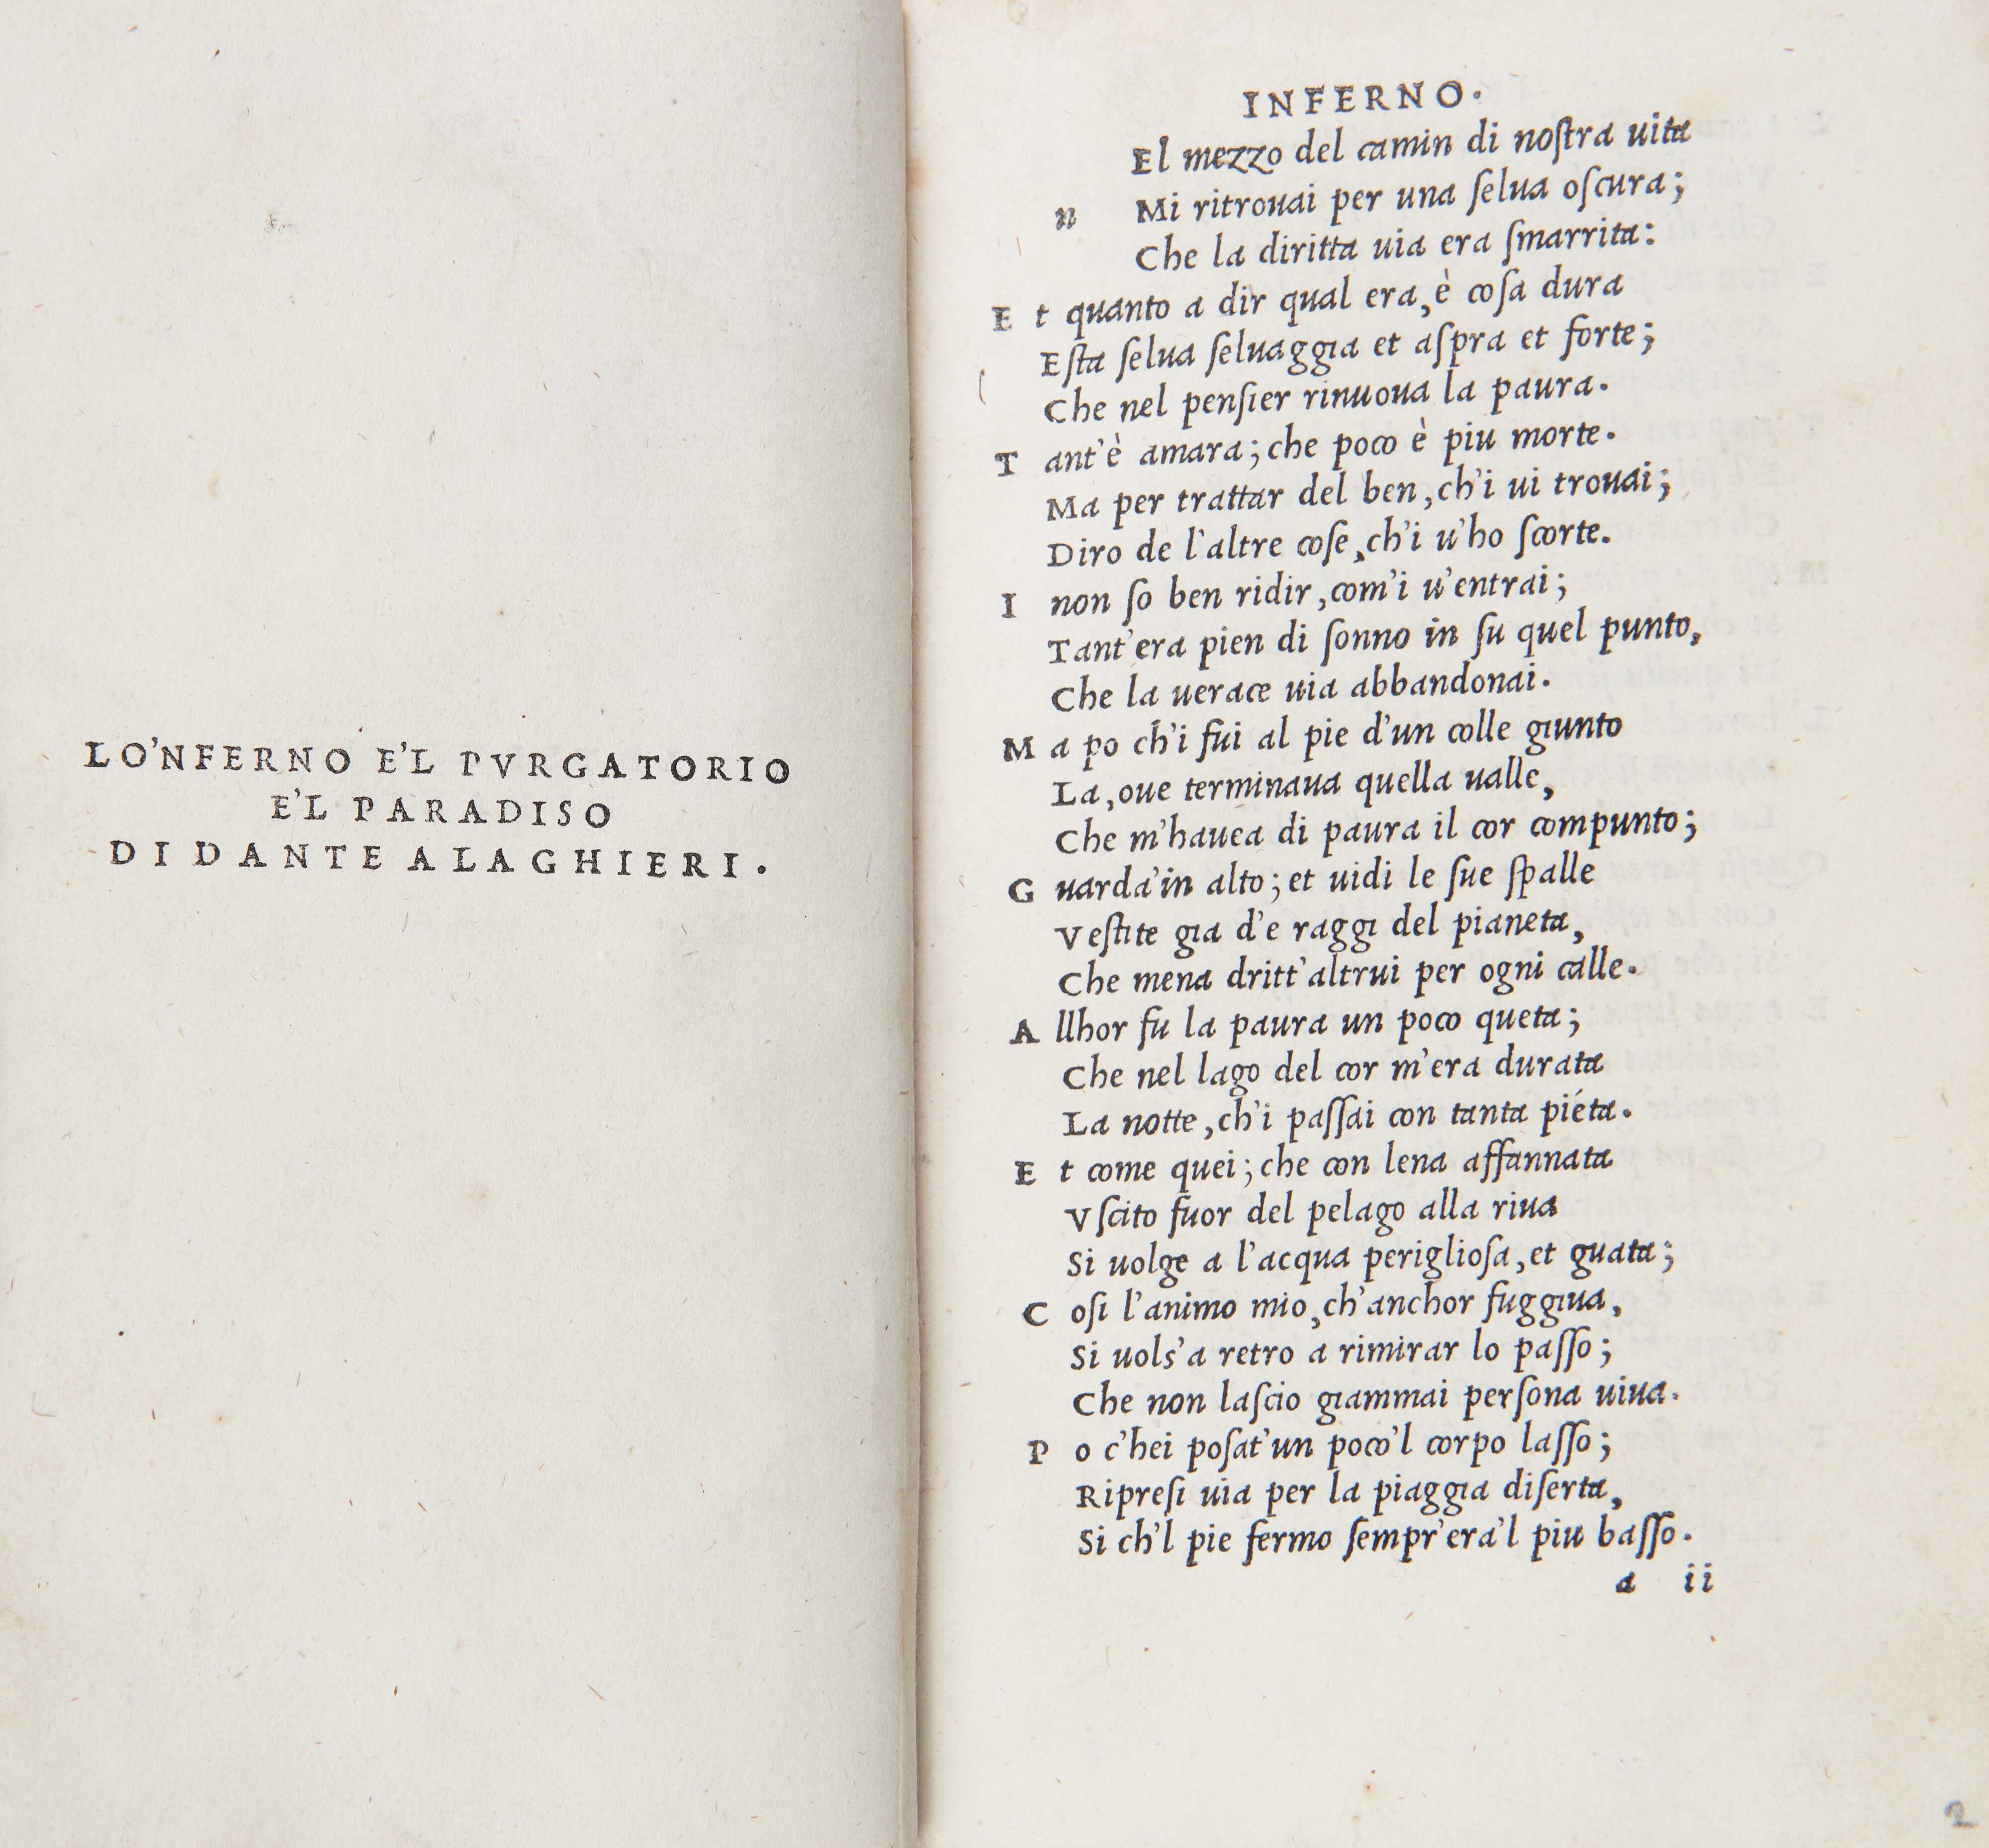 LO'NFERNO E'L PVRGATORIO
E'L PARADISO
DI DANTE ALAGHIERI.
INFERNO.
El mezzo del camin di noſtra uita
n Mi ritrouai per una ſelua oſcura;
Che la diritta uia era ſmarrita:
E t quanto a dir qual era, è coſa dura
Eſta ſelua ſeluaggia et aſpra et forte;
Che nel penſier rinuoua la paura.
T ant'è amara; che poco è piu morte.
Ma per trattar del ben, ch'i ui trouai;
Diro de l'altre coſe, ch'i u'ho ſcorte.
I non ſo ben ridir, com'i u'entrai;
Tant'era pien di ſonno in ſu quel punto,
Che la uerace uia abbandonai.
M a po ch'i fui al pie d'un colle giunto
La, oue terminaua quella ualle,
Che m'hauea di paura il cor compunto;
G uarda'in alto; et uidi le ſue ſpalle
Veſtite gia d'e raggi del pianeta,
Che mena dritt'altrui per ogni calle.
A llhor fu la paura un poco queta;
Che nel lago del cor m'era durata
La notte, ch'i paſſai con tanta piéta.
E t come quei; che con lena affannata
Vſcito fuor del pelago alla riua
Si uolge a l'acqua periglioſa, et guata;
C oſi l'animo mio, ch'anchor fuggiua,
Si uols'a retro a rimirar lo paſſo;
Che non laſcio giammai perſona uiua.
P o c'hei poſat'un poco'l corpo laſſo;
Ripreſi uia per la piaggia diſerta,
Si ch'l pie fermo ſempr'era'l piu baſſo.
a ii
2